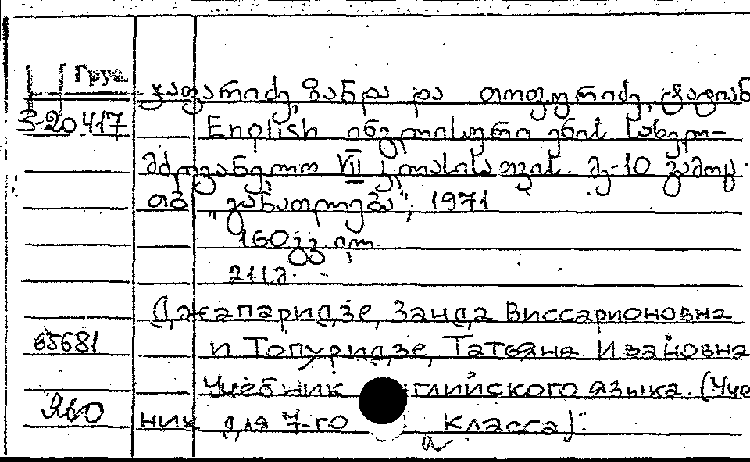 Груз.
ჯაფარიძე, ზანდა და თოფურიძე, ტატიან
3-20417
English ინგლისური ენის სახელ-
მძღვანელო VII კლასისათვის. მე-10 გამოც.
თბ. „განათლება", 1971
160 გვ. ილ.
Джапаридзе, Занда Виссарионовна
65681
и Топуридзе, Татьяна Ивановна
Учебник английского языка. (Учеб
ник для 7-го класса).